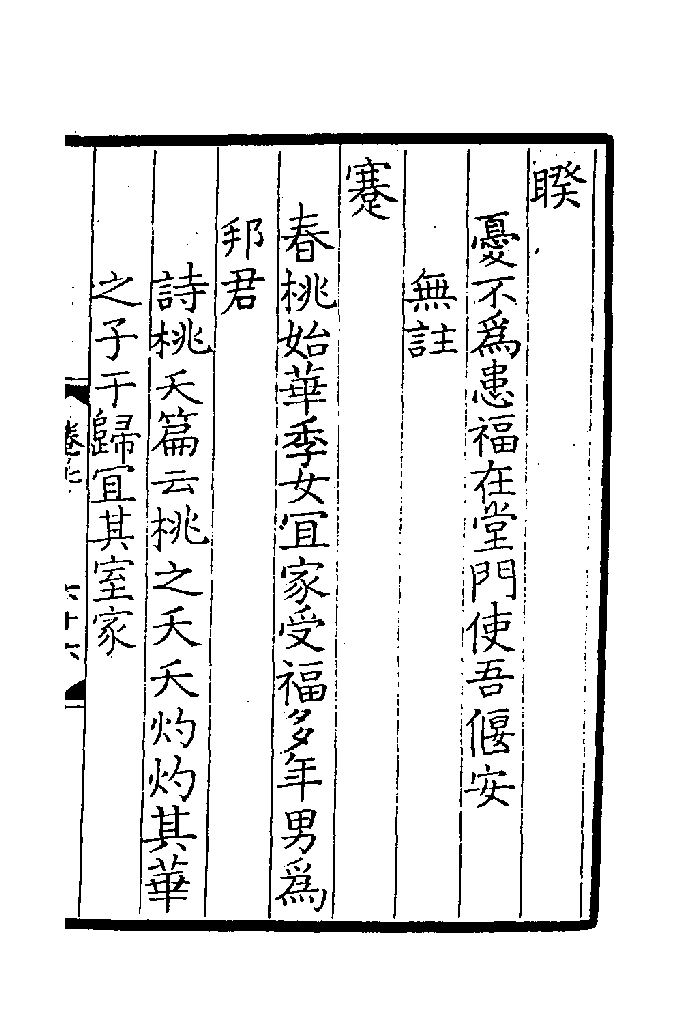 睽
憂不為患福在堂門使吾偃安
無註
蹇
春桃始華季女宜家受福多年男為
邦君
詩桃夭篇云桃之夭夭灼灼其華
之子于歸宜其室家
卷七
六十六